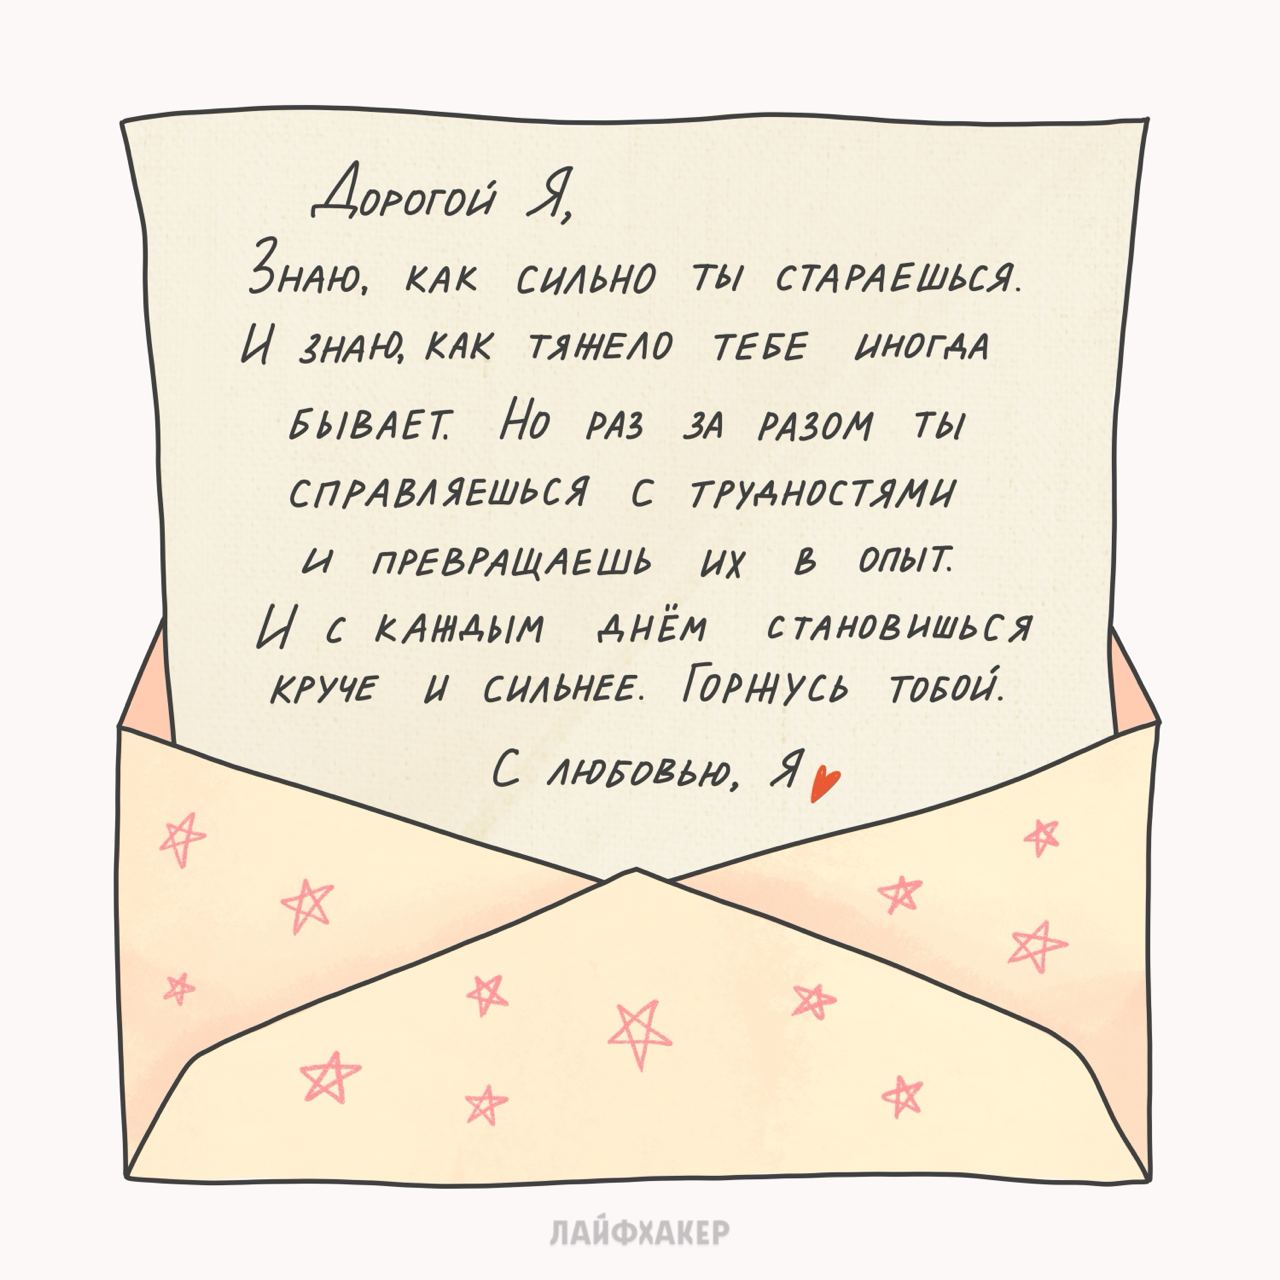 Дорогой Я,
Знаю, как сильно ты стараешься.
И знаю, как тяжело тебе иногда
бывает. Но раз за разом ты
справляешься с трудностями
и превращаешь их в опыт.
И с каждым днём становишься
круче и сильнее. Горжусь тобой.
С любовью, Я
ЛАЙФХАКЕР